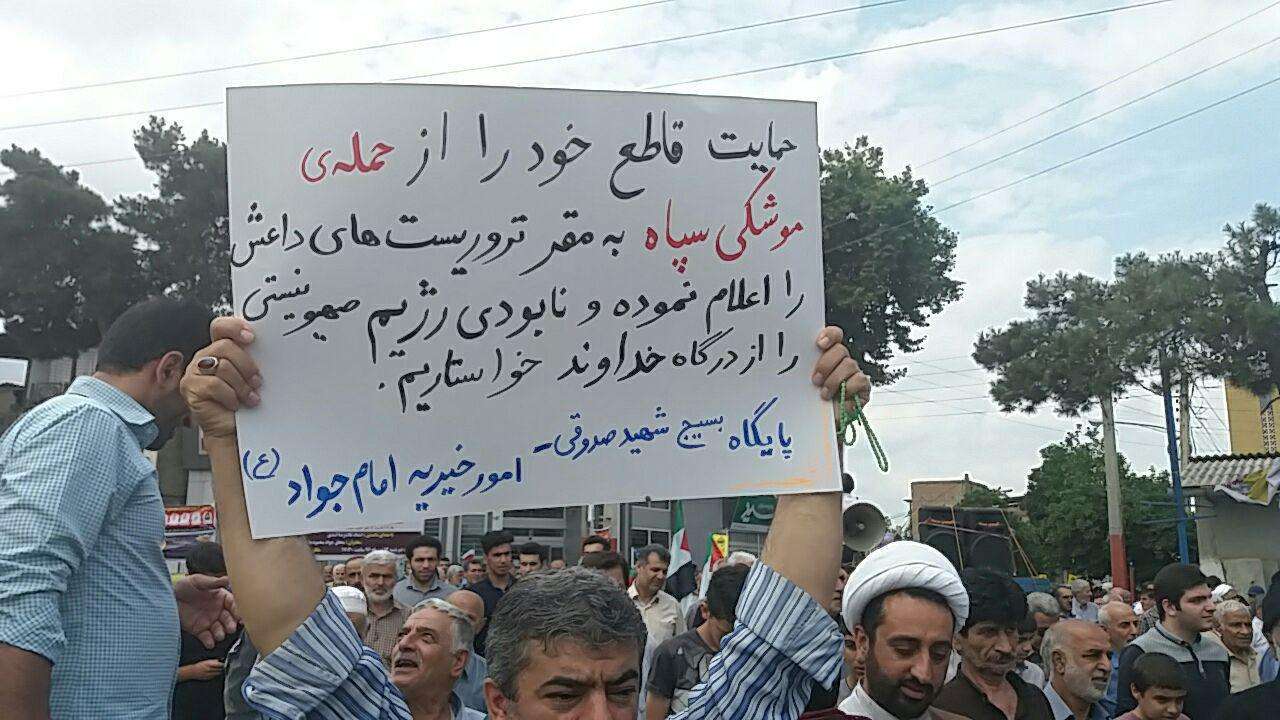 حمایت قاطع خود را از حمله‌ی
موشکی سپاه به مقر تروریست های داعش
را اعلام نموده و نابودی رژیم صهیونیستی
را از درگاه خداوند خواستاریم.
پایگاه بسیج شهید صدوقی - امور خیریه امام جواد (ع)